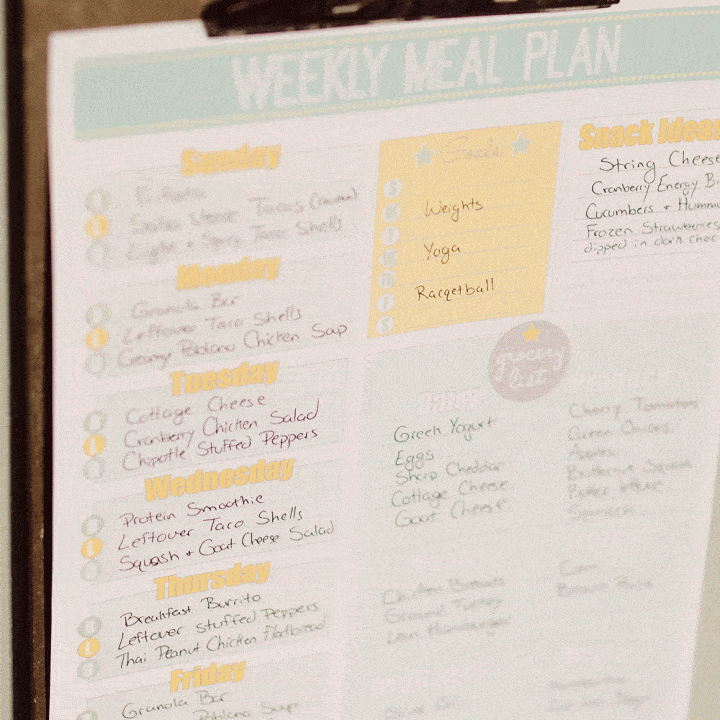 WEEKLY MEAL PLAN
Sunday
Tacos
Light + Spicy Taco Shells
Monday
Granola Bar
Leftover Taco Shells
Creamy Poblano Chicken Soup
Tuesday
Cottage Cheese
Cranberry Chicken Salad
Chipotle Stuffed Peppers
Wednesday
Protein Smoothie
Leftover Taco Shells
Squash + Goat Cheese Salad
Thursday
Breakfast Burrito
Leftover Stuffed Peppers
Thai Peanut Chicken Flatbread
Friday
Granola Bar
Poblano Soup
Goals
Weights
Yoga
Racqetball
Snack Ideas
String Cheese
Cranberry Energy B
Cucumbers + Hummu
Frozen Strawberries
dipped in dark choc
grocery
list
Greek Yogurt
Eggs
Sharp Cheddar
Cottage Cheese
Goat Cheese
Chicken Breasts
Ground Turkey
Lean Hamburger
Cherry Tomatoes
Green Onions
Apples
Butternut Squash
Corn
Brown Rice